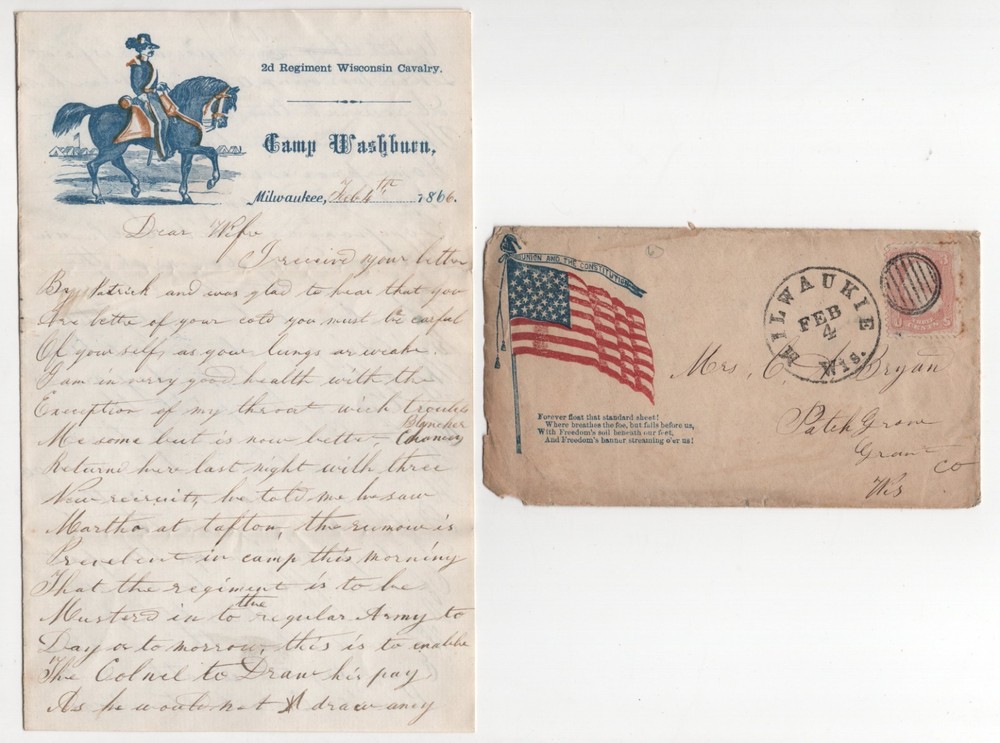 2d Regiment Wisconsin Cavalry.
Camp Washburn,
Milwaukee, Feb 4th 1866.
Dear Wife
I receive your letter
By Patrick and was glad to hear that you
Are bette of your cold you must be careful
Of your self, as your lungs ar weake.
I am in verry good health with the
Exception of my throat wich troubles
Blancher
Me some but is now better - Chancey
Returnd here last night with three
New recruits, he told me he saw
Martha at tafton, the rumow is
Prevelent in camp this morning
That the regiment is to be
the
Musterd in to regular Army to
Day or to morrow, this is to enable
The Colnel to Draw his pay
As he would not draw any
UNION AND THE CONSTITUTION
Forever float that standard sheet!
Where breathes the foe, but falls before us,
With Freedom's soil beneath our feet,
And Freedom's banner streaming o'er us!
MILWAUKIE
FEB
4
Wis.
Mrs. C Bryan
Patch Grove
Grant
Co
Wis